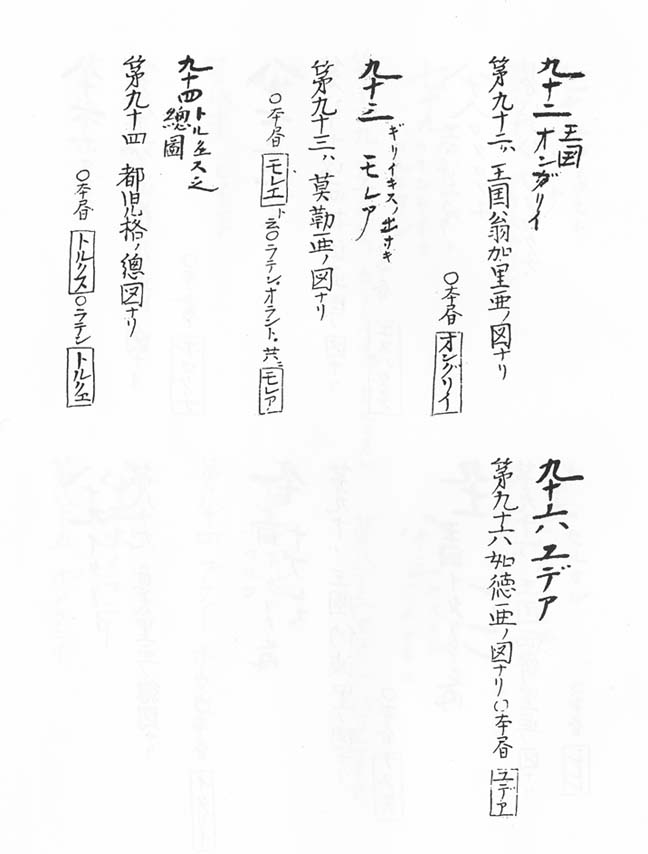 九十二 王国 オンガリイ
第九十二、王国翁加里亜ノ図ナリ
〇本昏 オングリイ
九十三 モレア ギリイキスノ出サキ
第九十三、莫勒亜ノ図ナリ
〇本昏 モレエ ト云〇ラテン、オラント、共ニ モレア
九十四 トルケス之 總圖
第九十四 都児格ノ總図ナリ
〇本昏 トルクス 〇ラテン トルクヱ
九十六 ユデア
第九十六 如徳亜ノ図ナリ 〇本昏 ユデア